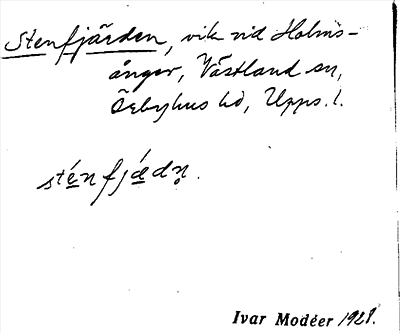 Stenfjärden, vik vid Holms-
ånger, Västland sn,
Örbyhus hd, Upps. l.
sténfjǽdn̥.
Ivar Modéer 1921.